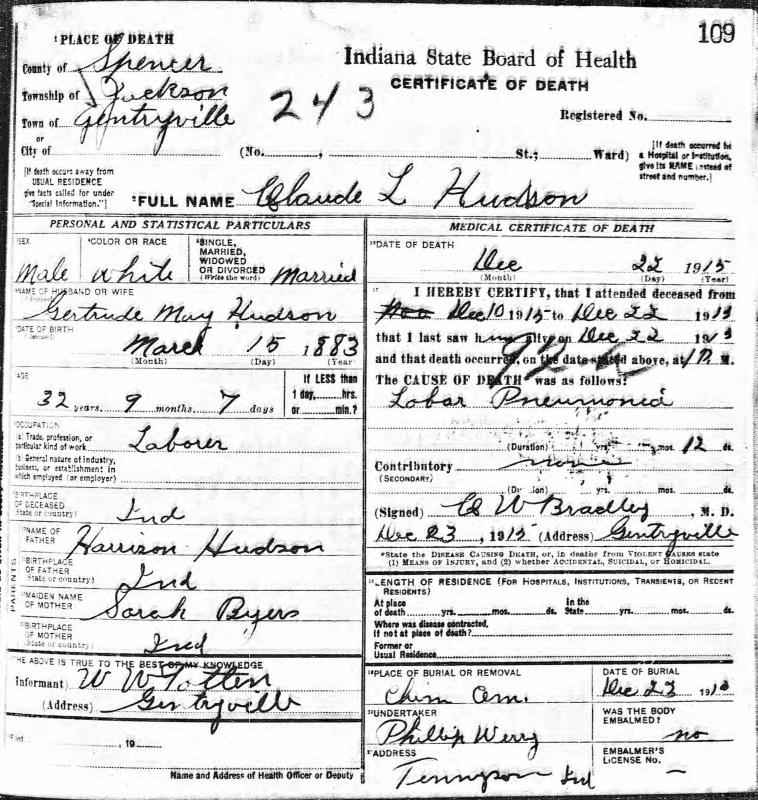 109
1 PLACE OF DEATH
Indiana State Board of Health
CERTIFICATE OF DEATH
County of Spencer
Township of Jackson
243
Registered No.
Town of Gentryville
or
City of (No. , St.; Ward)
[If death occurred in a Hospital or Institution, give its NAME instead of street and number.]
[If death occurs away from USUAL RESIDENCE give facts called for under "Special Information."]
2 FULL NAME Claude L Hudson
PERSONAL AND STATISTICAL PARTICULARS
SEX Male
COLOR OR RACE White
SINGLE, MARRIED, WIDOWED OR DIVORCED (Write the word) Married
NAME OF HUSBAND OR WIFE
Gertrude May Hudson
DATE OF BIRTH
March 15 1883
(Month) (Day) (Year)
AGE
32 years. 9 months. 7 days
If LESS than 1 day, hrs. or min.?
OCCUPATION
(a) Trade, profession, or particular kind of work Laborer
(b) General nature of industry, business, or establishment in which employed (or employer)
BIRTHPLACE OF DECEASED (State or country) Ind
NAME OF FATHER Harrison Hudson
PARENTS
BIRTHPLACE OF FATHER (State or country) Ind
MAIDEN NAME OF MOTHER Sarah Byers
BIRTHPLACE OF MOTHER (State or country) Ind
THE ABOVE IS TRUE TO THE BEST OF MY KNOWLEDGE
Informant) W W Totten
(Address) Gentryville
Filed , 19
Name and Address of Health Officer or Deputy
MEDICAL CERTIFICATE OF DEATH
DATE OF DEATH
Dec 22 1915
(Month) (Day) (Year)
I HEREBY CERTIFY, that I attended deceased from
Dec 10 1915 to Dec 22 191
that I last saw him alive on Dec 22 191
and that death occurred, on the date stated above, at M.
The CAUSE OF DEATH* was as follows:
Lobar Pneumonia
(Duration) yrs. mos. 12 ds.
Contributory none
(SECONDARY)
(Duration) yrs. mos. ds.
(Signed) W Bradley, M. D.
Dec 23, 1915 (Address) Gentryville
*State the DISEASE CAUSING DEATH, or, in deaths from VIOLENT CAUSES state (1) MEANS OF INJURY, and (2) whether ACCIDENTAL, SUICIDAL, or HOMICIDAL.
LENGTH OF RESIDENCE (FOR HOSPITALS, INSTITUTIONS, TRANSIENTS, OR RECENT RESIDENTS)
At place of death yrs. mos. ds. In the State yrs. mos. ds.
Where was disease contracted, If not at place of death?
Former or Usual Residence
PLACE OF BURIAL OR REMOVAL
DATE OF BURIAL
Dec 23 191
UNDERTAKER
Phillip Werry
WAS THE BODY EMBALMED?
no
ADDRESS
Tennyson Ind
EMBALMER'S LICENSE No. —